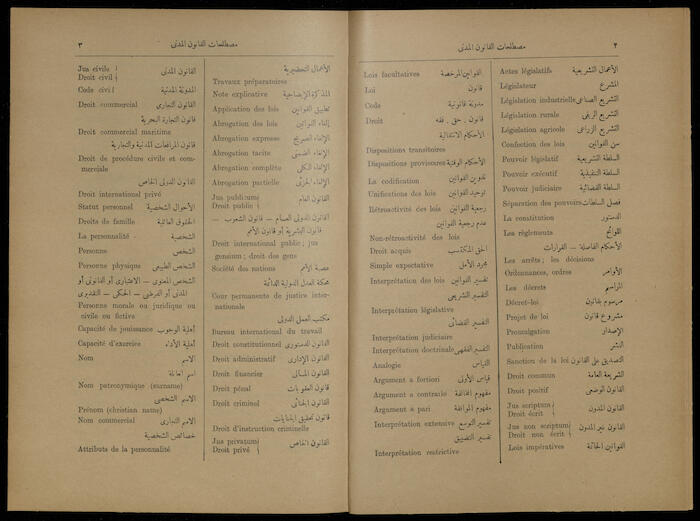 ٢
مصطلحات القانون المدنى
Actes législatifs الأعمال التشريعية
Législateur المشرع
Législation industrielle التشريع الصناعى
Législation rurale التشريع الريفى
Législation agricole التشريع الزراعى
Confection des lois سن القوانين
Pouvoir législatif السلطة التشريعية
Pouvoir exécutif السلطة التنفيذية
Pouvoir judiciaire السلطة القضائية
Séparation des pouvoirs فصل السلطات
La constitution الدستور
Les règlements اللوائح
الأحكام الفاصلة — القرارات
Les arrêts; les décisions
Ordonnances, ordres الأوامر
Les décrets المراسيم
Décret-loi مرسوم بقانون
Projet de loi مشروع قانون
Promulgation الإصدار
Publication النشر
Sanction de la loi التصديق على القانون
Droit commun الشريعة العامة
Droit positif القانون الوضعى
Jus scriptum
Droit écrit القانون المدون
Jus non scriptum
Droit non écrit القانون غير المدون
Lois impératives القوانين الحاتمة
Lois facultatives القوانين المرخصة
Loi قانون
Code مدونة قانونية
Droit قانون ، حق ، فقه
الأحكام الانتقالية
Dispositions transitoires
Dispositions provisoires الأحكام الوقتية
La codification تدوين القوانين
Unifications des lois توحيد القوانين
Rétroactivité des lois رجعية القوانين
عدم رجعية القوانين
Non-rétroactivité des lois
Droit acquis الحق المكتسب
Simple expectative مجرد الأمل
Interprétation des lois تفسير القوانين
التفسير التشريعى
Interprétation législative
التفسير القضائى
Interprétation judiciaire
Interprétation doctrinale التفسير الفقهى
Analogie القياس
Argument a fortiori قياس الأولى
Argument a contrario مفهوم المخالفة
Argument a pari مفهوم الموافقة
Interprétation extensive تفسير التوسع
تفسير التضييق
Interprétation restrictive
مصطلحات القانون المدنى
٣
الأعمال التحضيرية
Travaux préparatoires
Note explicative المذكرة الإيضاحية
Application des lois تطبيق القوانين
Abrogation des lois إلغاء القوانين
Abrogation expresse الإلغاء الصريح
Abrogation tacite الإلغاء الضمنى
Abrogation complète الإلغاء الكلى
Abrogation partielle الإلغاء الجزئى
Jus publicum
Droit public القانون العام
القانون الدولى العام — قانون الشعوب —
قانون البشرية أو قانون الأمم
Droit international public; jus
gensium; droit des gens
Société des nations عصبة الأمم
محكمة العدل الدولية الدائمة
Cour permanente de justice inter-
nationale
مكتب العمل الدولى
Bureau international du travail
Droit constitutionnel القانون الدستورى
Droit administratif القانون الإدارى
Droit financier القانون المالى
Droit pénal قانون العقوبات
Droit criminel القانون الجنائى
قانون تحقيق الجنايات
Droit d'instruction criminelle
Jus privatum
Droit privé القانون الخاص
Jus civile
Droit civil القانون المدنى
Code civil المدونة المدنية
Droit commercial القانون التجارى
قانون التجارة البحرية
Droit commercial maritime
قانون المرافعات المدنية والتجارية
Droit de procédure civile et com-
merciale
القانون الدولى الخاص
Droit international privé
Statut personnel الأحوال الشخصية
Droits de famille الحقوق العائلية
La personnalité الشخصية
Personne الشخص
Personne physique الشخص الطبيعى
الشخص المعنوى — الاعتبارى أو القانونى أو
المدنى أو الفرضى — الحكمى — التقديرى
Personne morale ou juridique ou
civile ou fictive
Capacité de jouissance أهلية الوجوب
Capacité d'exercice أهلية الأداء
Nom الاسم
اسم العائلة
Nom patronymique (surname)
الاسم الشخصى
Prénom (christian name)
Nom commercial الاسم التجارى
خصائص الشخصية
Attributs de la personnalité